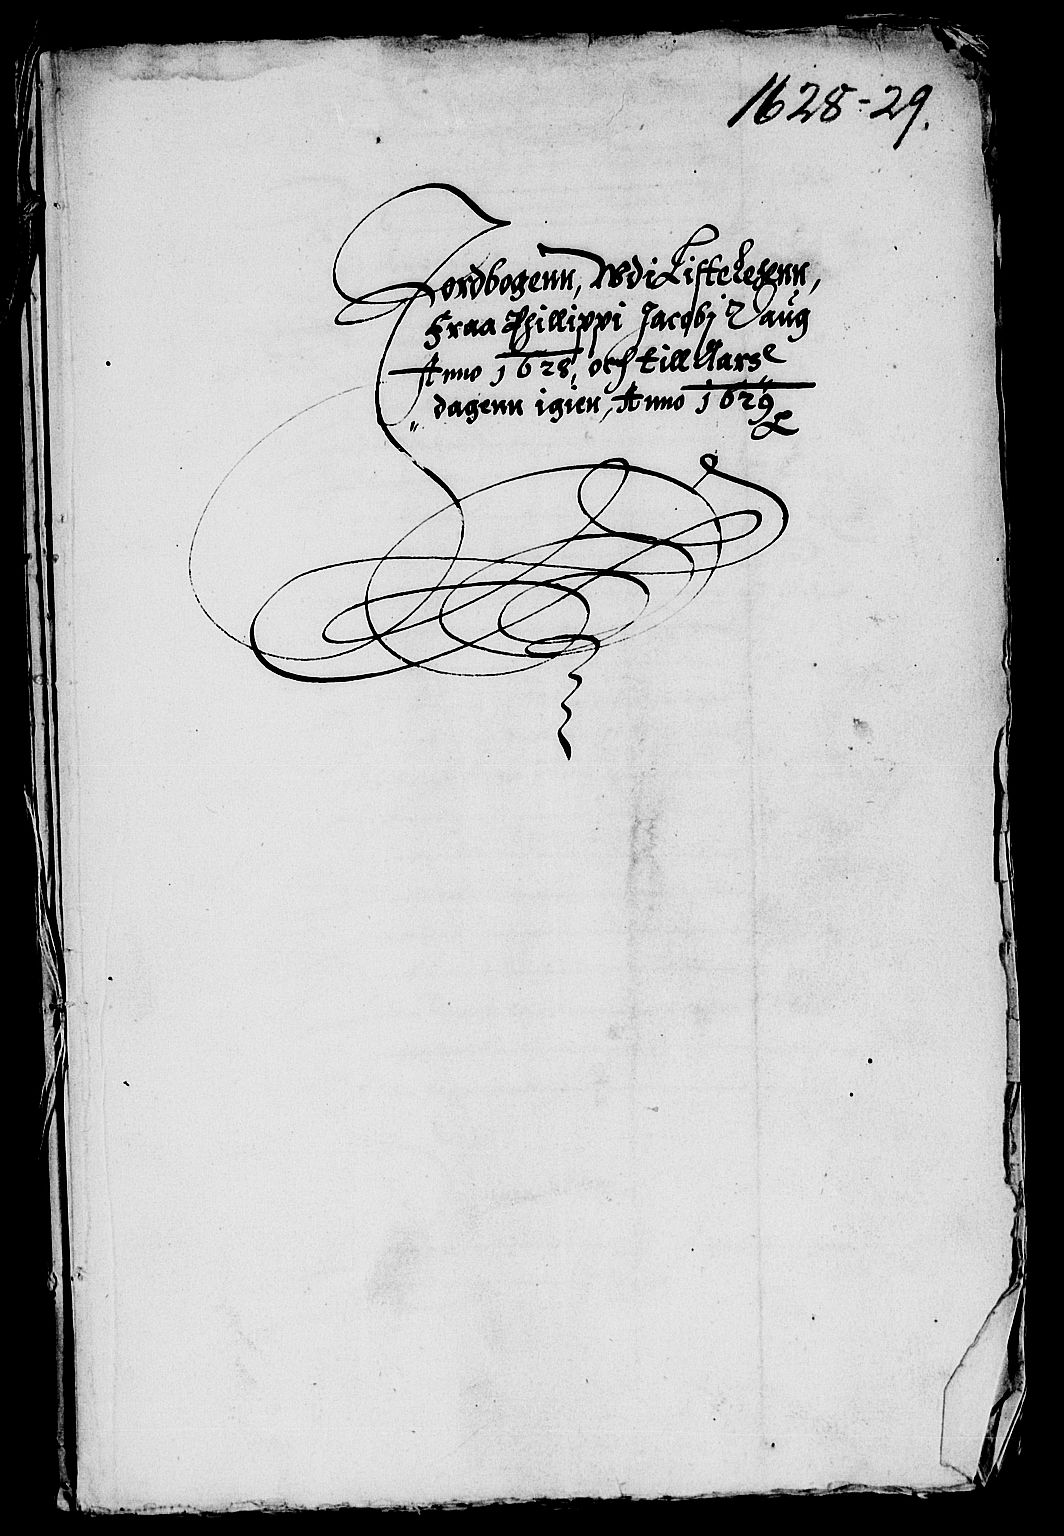 1628-29.
Jordbogenn, Wdi Listelehenn,
Fraa Phillippi Jacobj Daug
Anno 1628, och till Aars
dagenn igien, Anno 1629